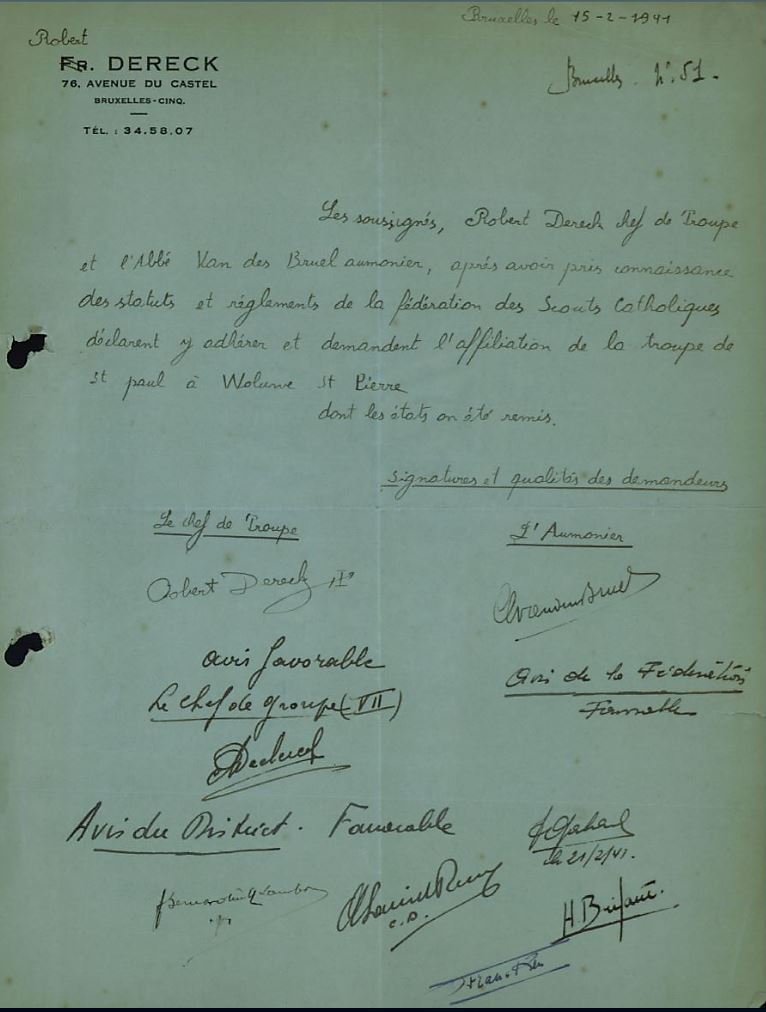 Bruxelles le 15-2-1941
Robert
Fr. DERECK
76, AVENUE DU CASTEL
BRUXELLES-CINQ.
TÉL. : 34.58.07
Bruxelles. N°. 51.
Les soussignés, Robert Dereck chef de Troupe
et l'Abbé Van des Bruel aumonier, après avoir pris connaissance
des statuts et réglements de la fédération des Scouts Catholiques
déclarent y adhérer et demandent l'affiliation de la troupe de
St paul à Woluwe St Pierre
dont les états on été remis.
signatures et qualités des demandeurs
Le chef de Troupe
L'Aumonier
Robert Dereck
avis favorable
Le chef de groupe (VII)
Avis de la Fédération
Favorable
Avis du District. Favorable
le 21/2/41.
C.D.